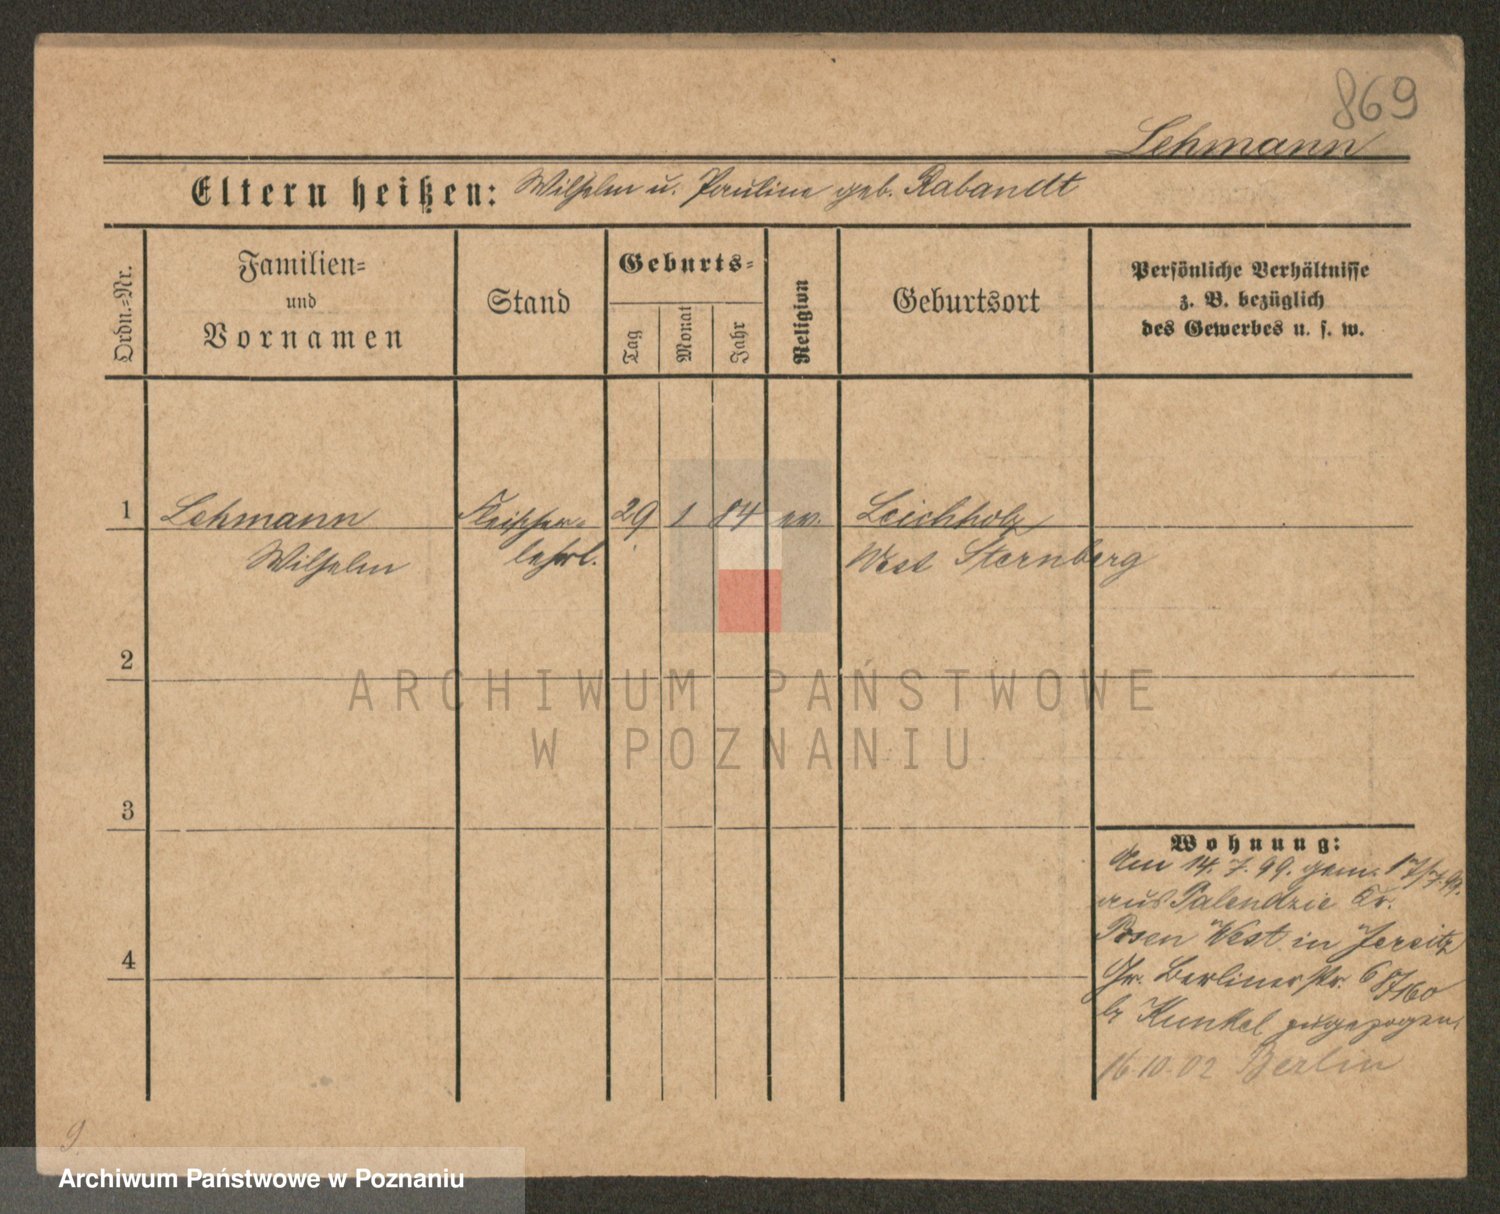 869
Lehmann
Eltern heißen: Wilhelm u. Pauline geb. Rabandt
Ordn.-Nr.
Familien-
und
Vornamen
Stand
Geburts-
Tag
Monat
Jahr
Religion
Geburtsort
Persönliche Verhältnisse
z. B. bezüglich
des Gewerbes u. s. w.
1 Lehmann Fleischer- 29 1 84 ev. Leichholz
Wilhelm lehrl. West Sternberg
2
ARCHIWUM PAŃSTWOWE
W POZNANIU
3
Wohnung:
Am 14.7.99. gem. 17/7.99.
aus Palendzie Kr.
Posen West in Jersitz
4
Gr. Berlinerstr.
b. Kunkel zugezogen.
16.10.02 Berlin
9.
Archiwum Państwowe w Poznaniu